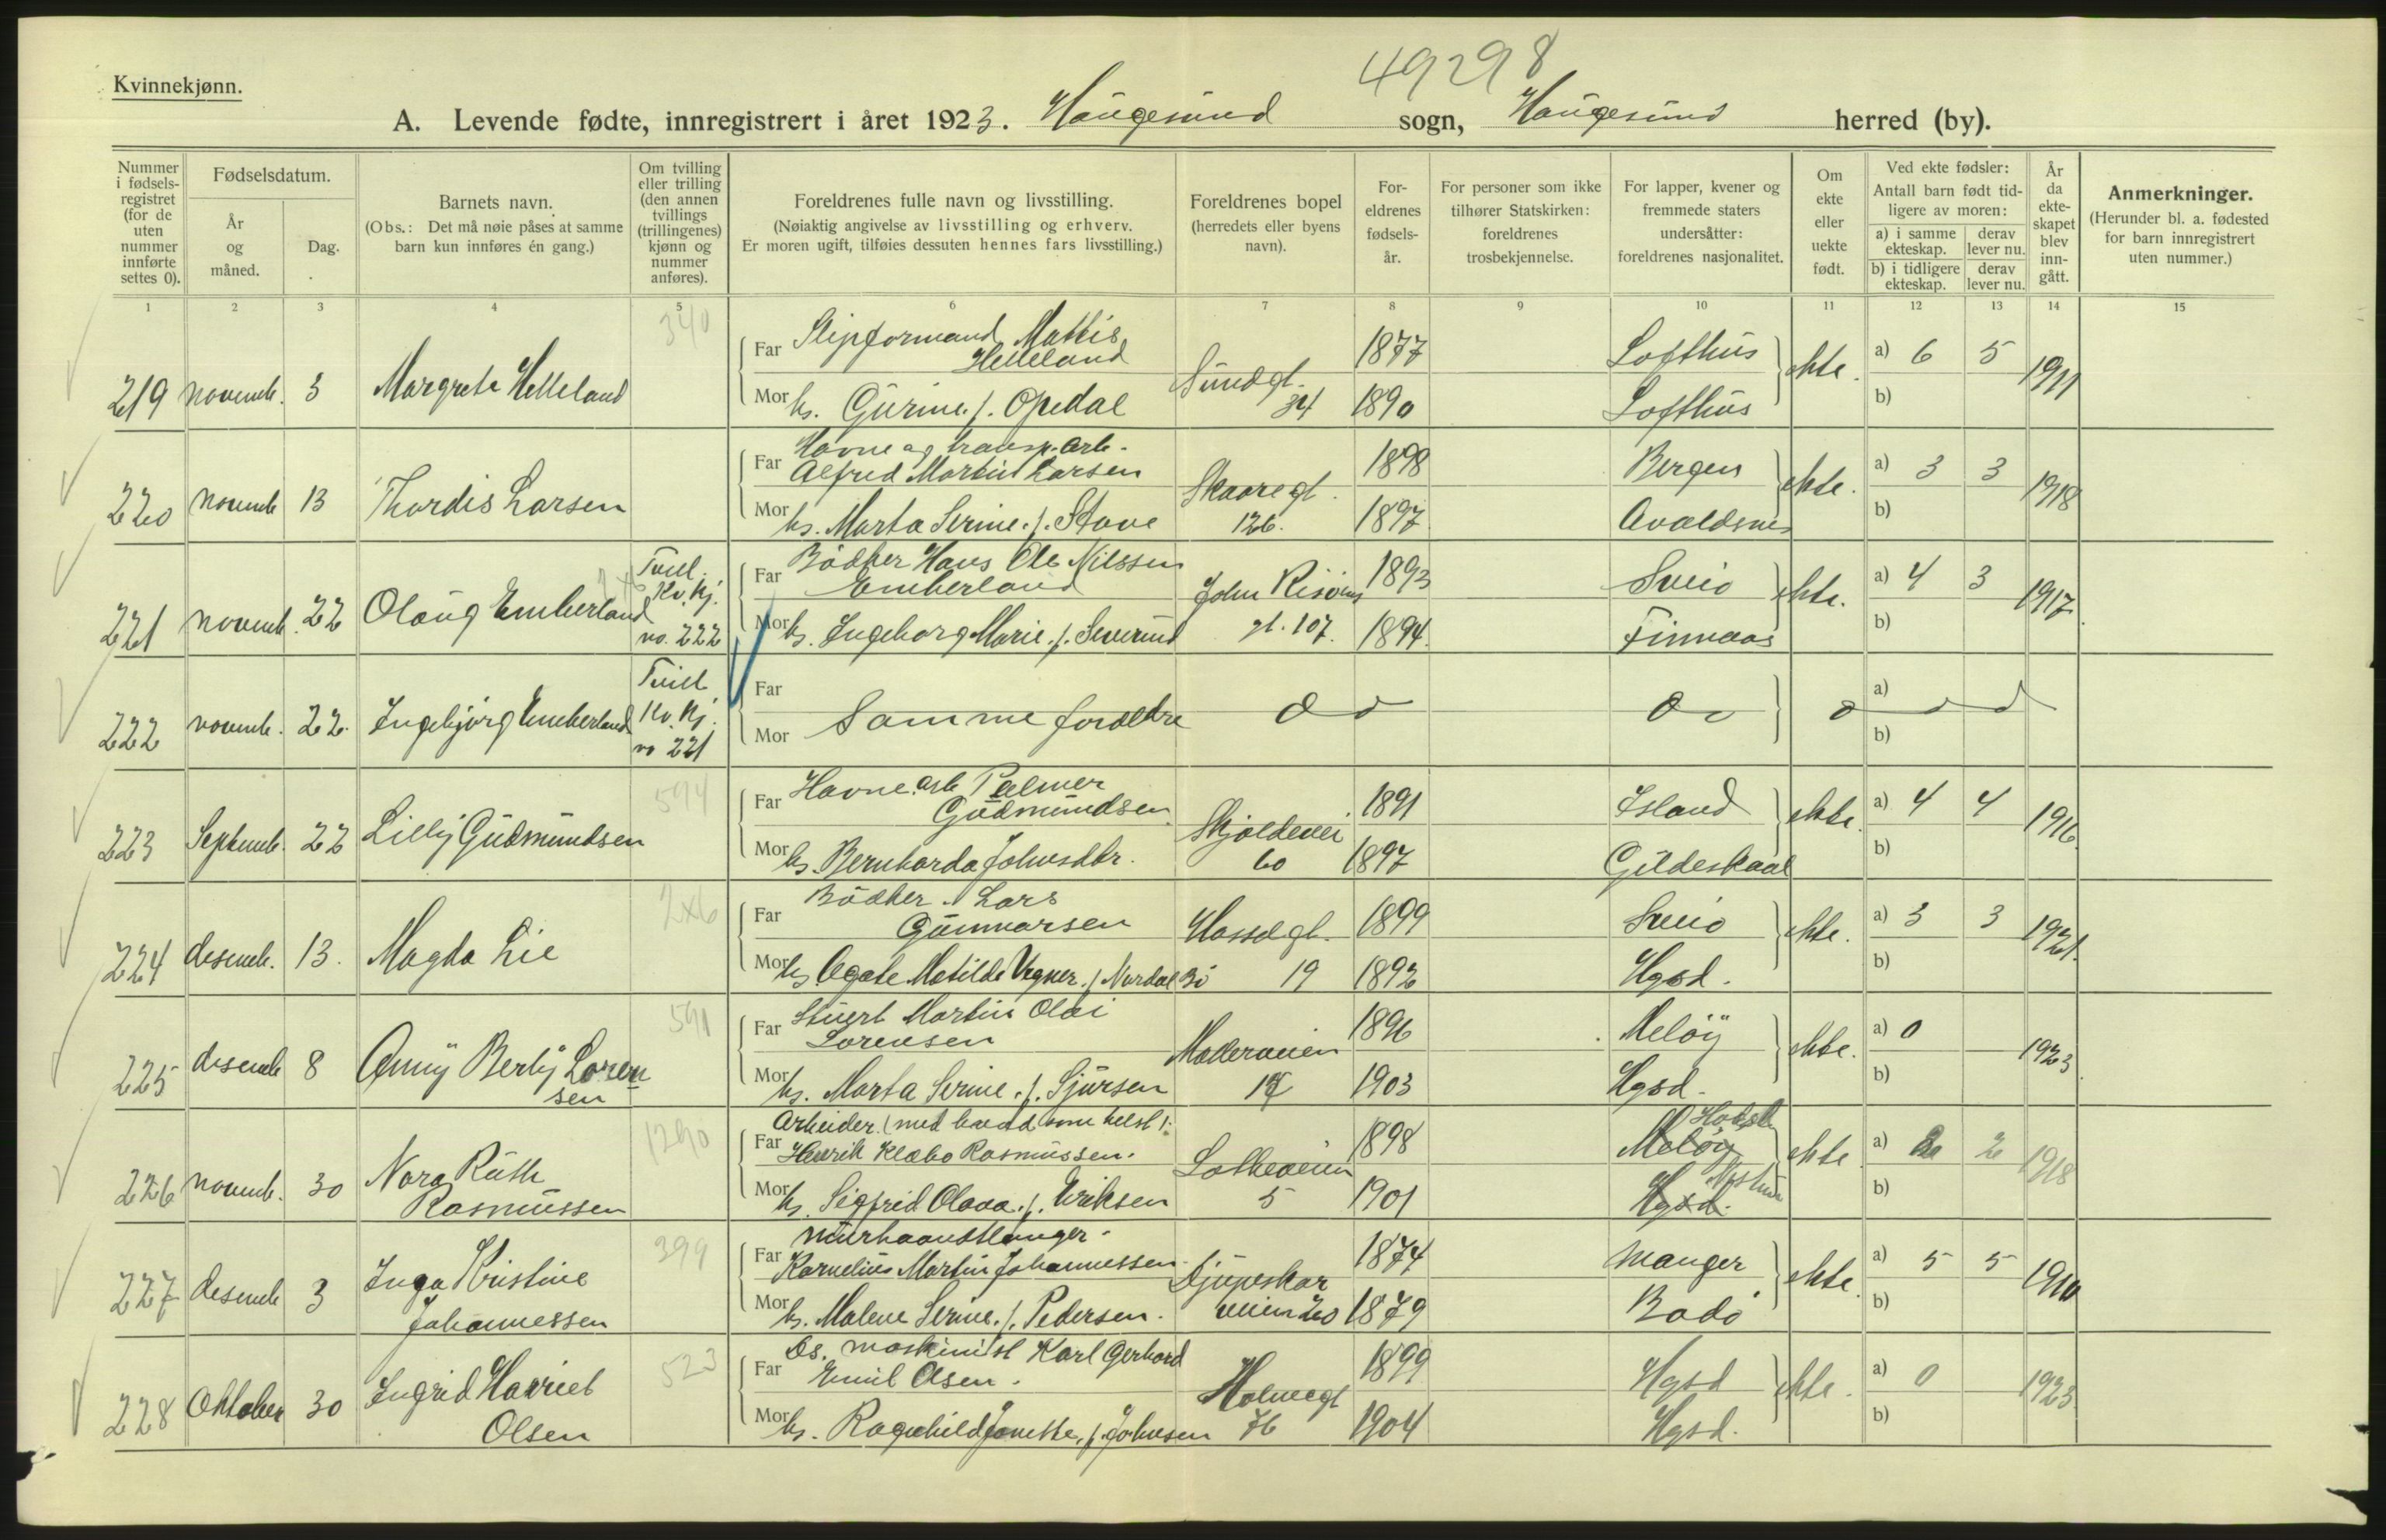 49298
Kvinnekjønn.
A. Levende fødte, innregistrert i året 1923. Haugesund sogn, Haugesund herred (by).
Nummer i fødselsregistret (for de uten nummer innførte settes 0).
Fødselsdatum.
År og måned.
Dag.
Barnets navn.
(Obs.: Det må nøie påses at samme barn kun innføres én gang.)
Om tvilling eller trilling (den annen tvillings (trillingenes) kjønn og nummer anføres).
Foreldrenes fulle navn og livsstilling.
(Nøiaktig angivelse av livsstilling og erhverv.
Er moren ugift, tilføies dessuten hennes fars livsstilling.)
Foreldrenes bopel
(herredets eller byens navn).
Foreldrenes fødselsår.
For personer som ikke tilhører Statskirken: foreldrenes trosbekjennelse.
For lapper, kvener og fremmede staters undersåtter: foreldrenes nasjonalitet.
Om ekte eller uekte født.
Ved ekte fødsler:
Antall barn født tidligere av moren:
a) i samme ekteskap. derav lever nu.
b) i tidligere ekteskap. derav lever nu.
År da ekteskapet blev inngått.
Anmerkninger.
(Herunder bl. a. fødested for barn innregistrert uten nummer.)
1 2 3 4 5 6 7 8 9 10 11 12 13 14 15
340
Far Slipformand Mathis Helleland 1877 Lofthus
219 novemb. 3 Margreta Helleland Sundgt. 34 ekte. a) 6 5 1911
Mor hs. Gurine f. Opedal 1890 Lofthus b)
Far Havne og transp. arb. Alfred Martin Larsen 1898 Bergen
220 novemb 13 Thordis Larsen Skaaregt. 126. ekte. a) 3 3 1918
Mor hs. Marta Serine f. Stave 1897 Avaldsnes b)
Far Bödker Hans Ole Nilssen Emberland 1893 Sveio
221 novemb. 22 Olaug Emberland Tvill. Kv.kj. no. 222 John Risöens gt. 107. ekte. a) 4 3 1917
Mor hs. Ingeborg Marie f. Severind 1894 Finnaas b)
222 novemb. 22. Ingebjörg Emberland Tvill. Kv.kj. no 221
Far
Mor Samme foreldre a)
b)
594
Far Havnearb Palmer Gudmundsen 1891 Island
223 Septemb. 22 Lilly Gudmundsen Skjoldevei 60 ekte. a) 4 4 1916
Mor hs. Bernharda Johnsdtr. 1897 Gildeskaal b)
2x6
Far Bödker Lars Gunnarsen 1899 Sveio
224 desemb. 13. Magda Lie Hasselgt. 19 ekte. a) 3 3 1921.
Mor hs Agate Matilde Vegner f. Nordal Bö 1892 Hgsd. b)
591
Far Stuert Martin Olai Lorensen 1896 Melöy
225 desemb 8 Anny Berly Lorensen Møllerveien ekte. a) 0 1923
Mor hs. Marta Serine f. Sjursen 1903 Hgsd. b)
1290
Far Arbeider (med hvad som helst). Henrik Klæbo Rasmussen. 1898 Melöy
226 novemb. 30 Nora Ruth Rasmussen 5 ekte a) 2 1918
Mor hs. Sigfrid Olava f. Eriksen 1901 Hgsd. b)
399
Far Murhaandlanger. Kornelius Martin Johannessen 1874 Manger
227 desemb 3 Inga Kristine Johannessen Djupeskarveien 20 ekte. a) 5 5 1910
Mor hs. Malene Serine f. Pedersen. 1879 Bodö b)
523
Far Ds. maskinist Karl Gerhard Emil Olsen. 1899 Hgsd
228 Oktober 30 Ingrid Harriet Olsen Holmegt 76 ekte. a) 0 1923
Mor hs. Ragnhild Janette f. Johnsen 1904 Hgsd. b)